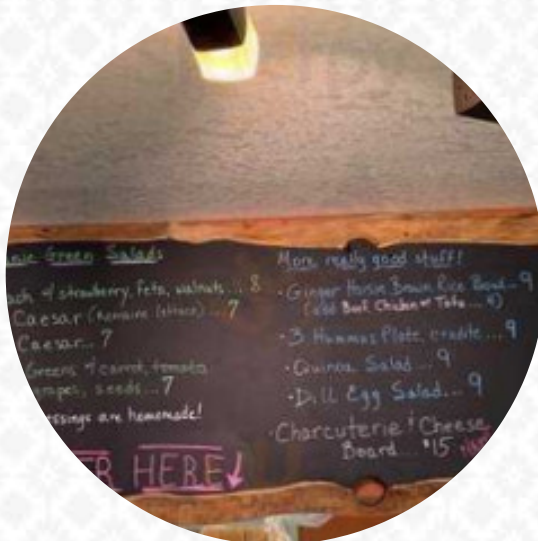 Green Salads
strawberry, feta, walnuts... 8
Caesar (Romaine lettuce)... 7
Caesar... 7
Greens w/ carrot, tomato
seeds... 7
are homemade!
HERE
More really good stuff!
• Ginger Hoisin Brown Rice Bowl - 9
(add Beef, Chicken or Tofu...
• 3 Hummus Plate, crudite... 9
• Quinoa Salad... 9
• Dill Egg Salad... 9
• Charcuterie & Cheese
Board... $15